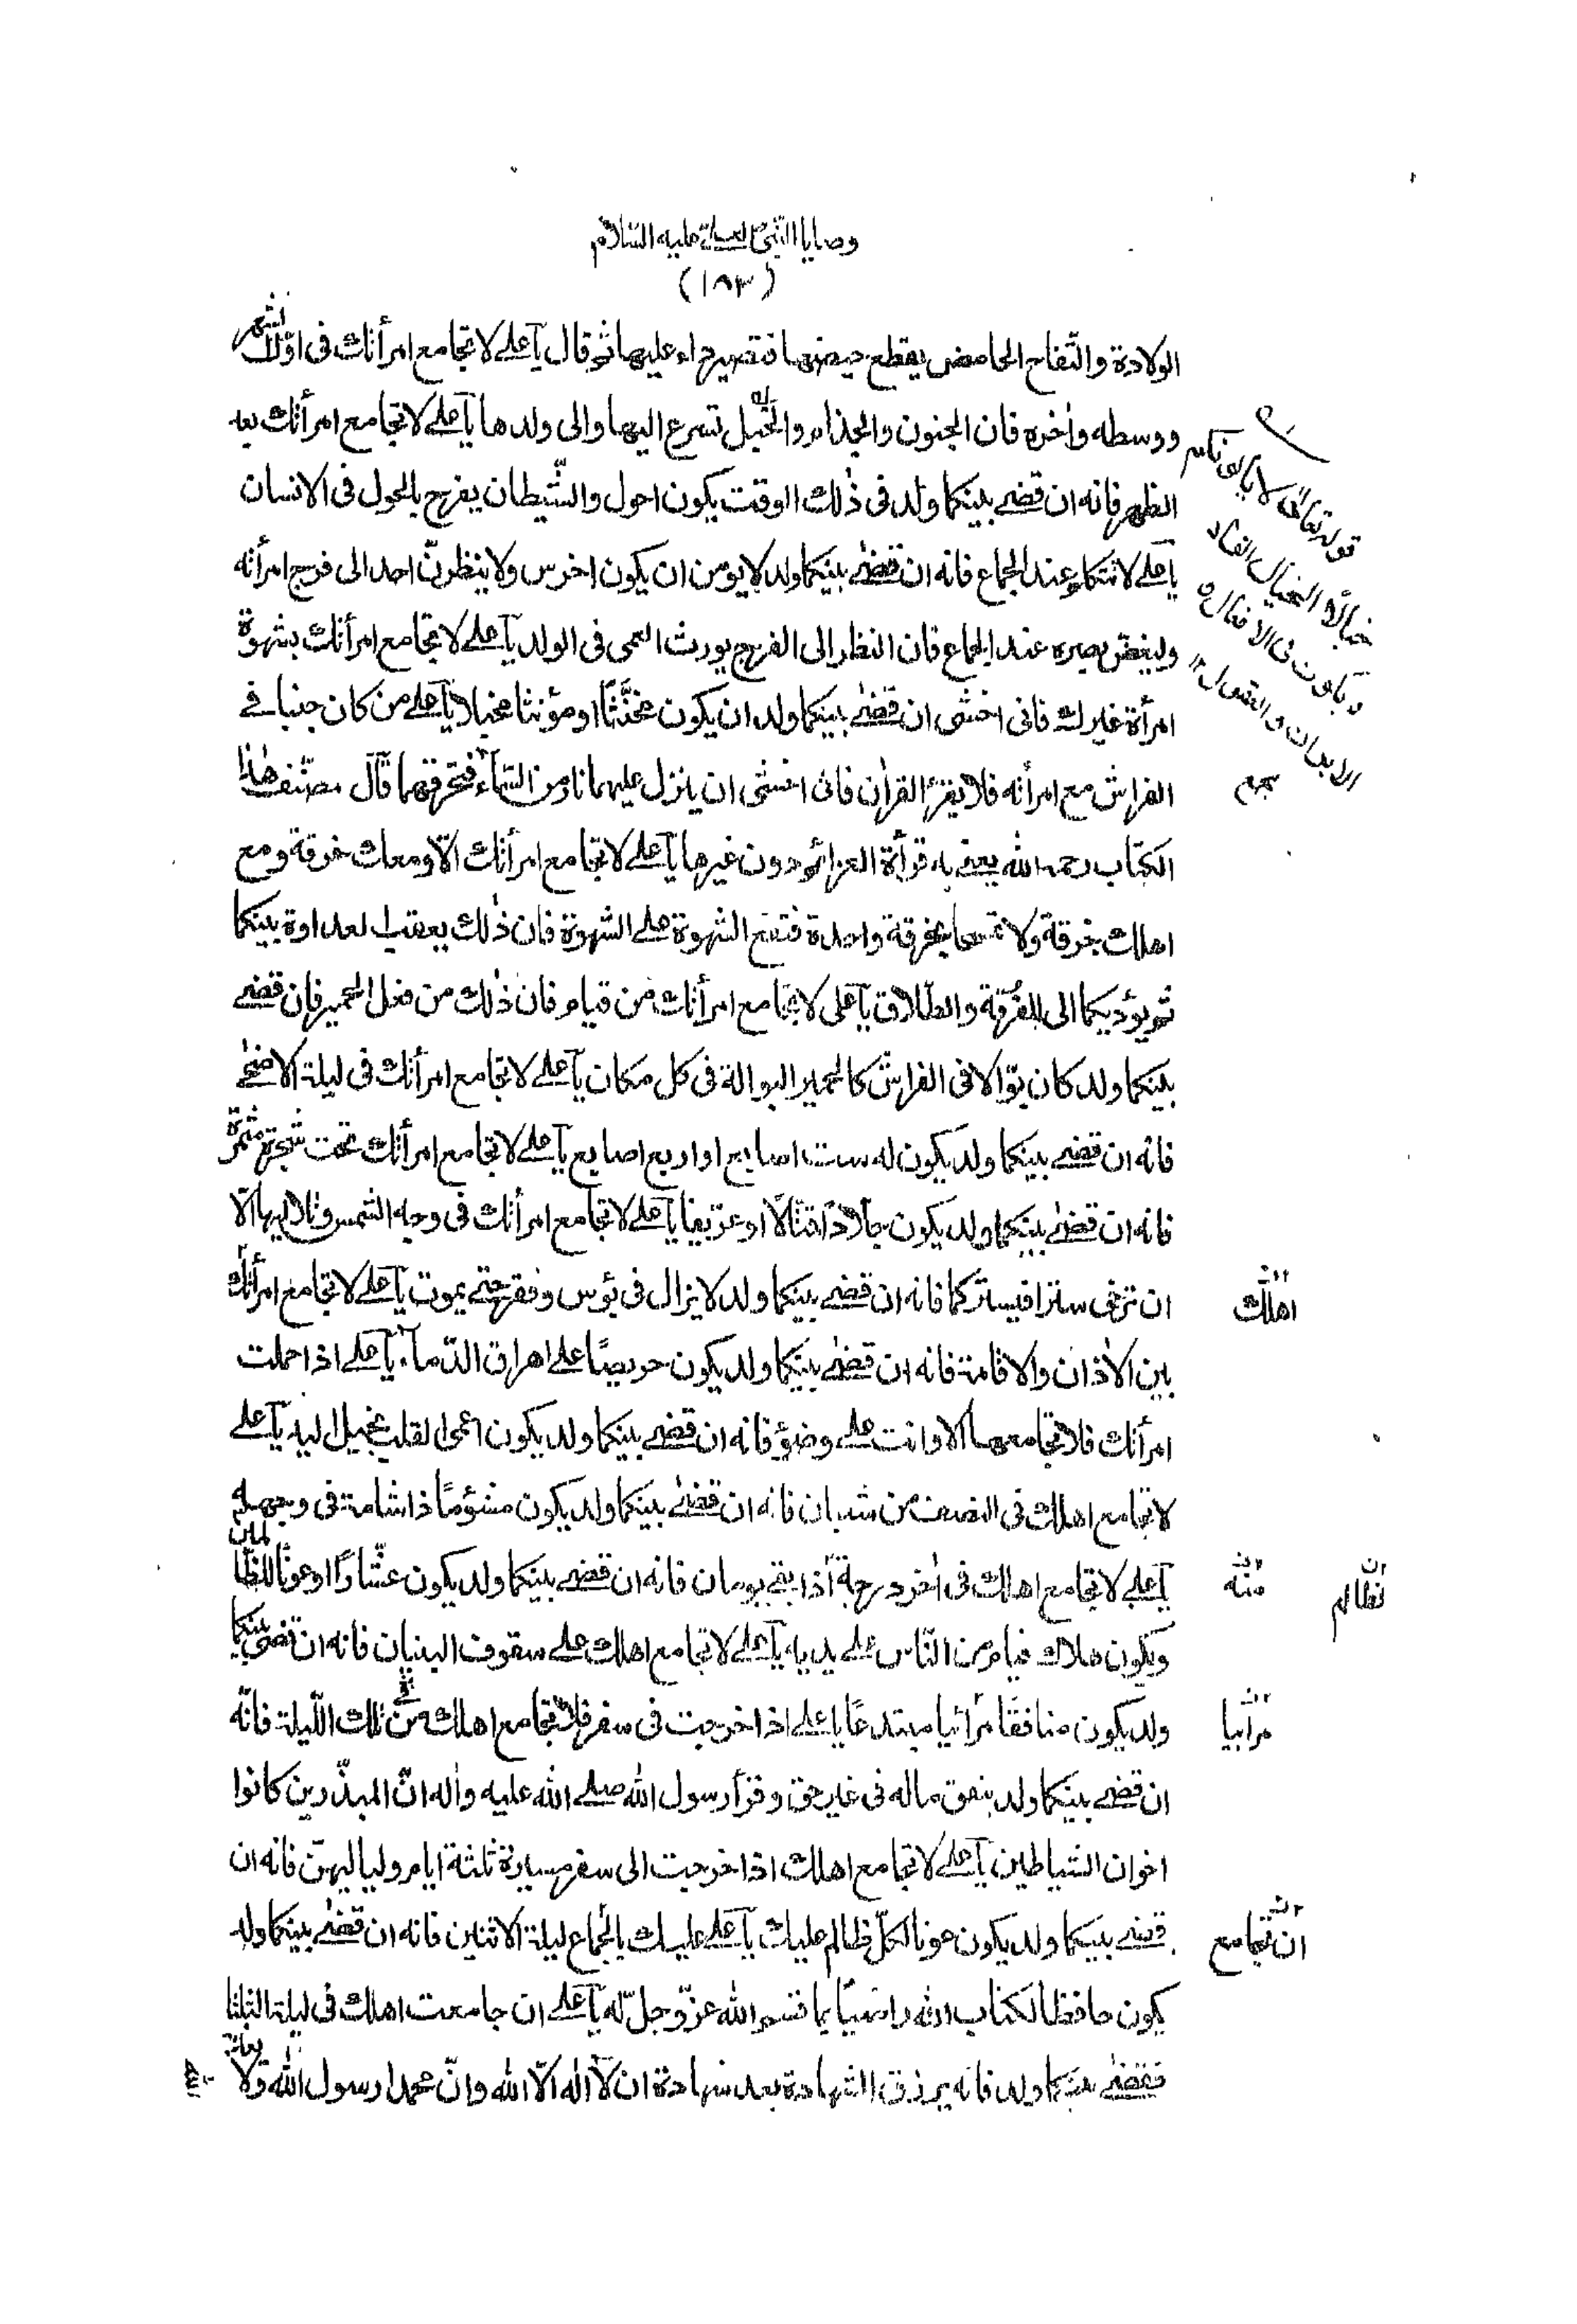 وصايا النبي ص لعلي عليه السلام
(١٨٣)
الولادة والتّفاح الحامض يقطع حيضها فتصير داء عليها ثم قال يا علي لا تجامع امرأتك في اوّل الشهر
ووسطه وآخره فان الجنون والجذام والخبل تسرع اليها والى ولدها يا علي لا تجامع امرأتك بعد
الظهر فانه ان قضي بينكما ولد في ذلك الوقت يكون احول والشّيطان يفرح بالحول في الانسان
يا علي لا تتكلم عند الجماع فانه ان قضي بينكما ولد لا يؤمن ان يكون اخرس ولا ينظرنّ احد الى فرج امرأته
وليغض بصره عند الجماع فان النظر الى الفرج يورث العمى في الولد يا علي لا تجامع امرأتك بشهوة
امرأة غيرك فاني اخشى ان قضي بينكما ولد ان يكون مخنّثا او مؤنثا مخبلا يا علي من كان جنبا في
الفراش مع امرأته فلا يقرء القرآن فاني اخشى ان ينزل عليهما نار من السّماء فتحرقهما قال مصنّف هذا
الكتاب رحمه الله يعني به قرأة العزائم دون غيرها يا علي لا تجامع امرأتك الّا ومعك خرقة ومع
اهلك خرقة ولا تمسحا بخرقة واحدة فتقع الشهوة على الشهوة فان ذلك يعقب العداوة بينكما
ثم يؤديكما الى الفرقة والطلاق يا علي لا تجامع امرأتك من قيام فان ذلك من فعل الحمير فان قضي
بينكما ولد كان بوّالا في الفراش كالحمير البوالة في كل مكان يا علي لا تجامع امرأتك في ليلة الاضحى
فانه ان قضي بينكما ولد يكون له ست اصابع او اربع اصابع يا علي لا تجامع امرأتك تحت شجرة مثمرة
فانه ان قضي بينكما ولد يكون جلّادا قتّالا او عريفا يا علي لا تجامع امرأتك في وجه الشمس وتلاليها الّا
ان ترخى سترا فيستركما فانه ان قضي بينكما ولد لا يزال في بؤس وفقر حتى يموت يا علي لا تجامع امرأتك
اهلك
بين الاذان والاقامة فانه ان قضي بينكما ولد يكون حريصًا على اهراق الدّماء يا علي اذا حملت
امرأتك فلا تجامعها الّا وانت على وضوء فانه ان قضي بينكما ولد يكون اعمى القلب بخيل اليد يا علي
لا تجامع اهلك في النصف من شعبان فانه ان قضي بينكما ولد يكون مشؤمًا ذا شامة في وجهه
يا علي لا تجامع اهلك في آخر درجة اذا بقي يومان فانه ان قضي بينكما ولد يكون عشّارًا او عونًا للظالمين
منه
لظالم
ويكون هلاك فئام من النّاس على يديه يا علي لا تجامع اهلك على سقوف البنيان فانه ان قضي بينكما
ولد يكون منافقًا مرائيا مبتدعًا يا علي اذا خرجت في سفر فلا تجامع اهلك من تلك اللّيلة فانّه
مرائيا
ان قضي بينكما ولد ينفق ماله في غير حق وقرأ رسول الله صلى الله عليه وآله انّ المبذّرين كانوا
اخوان الشياطين يا علي لا تجامع اهلك اذا خرجت الى سفر مسيرة ثلثة ايام ولياليهنّ فانه ان
قضي بينكما ولد يكون عونا لكلّ ظالم عليك يا علي عليك بالجماع ليلة الاثنين فانه ان قضي بينكما ولد
ان تجامع
يكون حافظا لكتاب الله راضيًا بما قسم الله عزّ وجلّ له يا علي ان جامعت اهلك في ليلة الثلثا
فقضي بينكما ولد فانه يرزق الشهادة بعد شهادة ان لا اله الّا الله وانّ محمدا رسول الله ولا
قوله تعالى لا يألونكم
خبالًا الخبال الفساد
ويكون في الافعال و
الابدان والعقول
مجمع